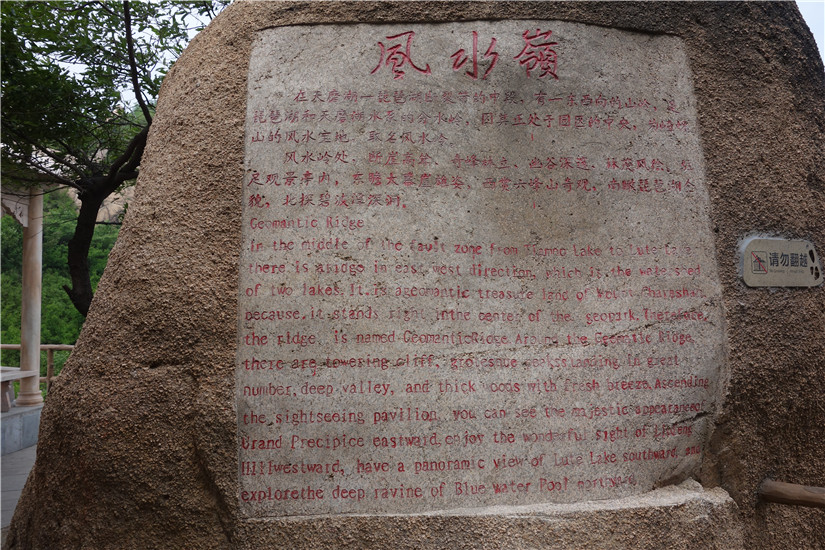 風水嶺
在天磨湖—琵琶湖断裂带的中段，有一东西向的山岭，是
琵琶湖和天磨湖水系的分水岭，因其正处于园区的中央，为
山的风水宝地，取名风水岭
风水岭处，断崖高耸，奇峰林立，幽谷深邃，
足观景亭内，东瞻大断崖雄姿，西 六峰山奇观，南瞰琵琶湖全
貌，北探碧波潭深涧。
Geomantic Ridge
In the middle of the fault zone from Tianmo Lake to Lute Lake
there is a ridge in east west direction, which is the watershed
of two lakes. It is a geomantic treasure land of Mount
because, it stands right inthe center of the geopark. Therefore,
the ridge is named GeomanticRidge. Around the Geomantic Ridge,
there are towering cliff, grotesque peaks standing in great
number, deep valley, and thick woods with fresh breeze. Ascending
the sightseeing pavilion, you can see the majestic appearance of
Grand Precipice eastward, enjoy the wonderful sight of
Hillwestward, have a panoramic view of Lute Lake southward, and
explorethe deep ravine of Blue Water Pool northward
请勿翻越